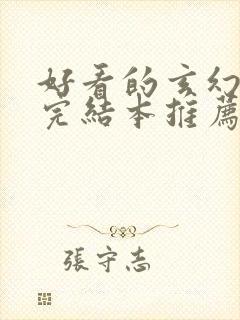 好看的玄幻
完結本推薦
張守志